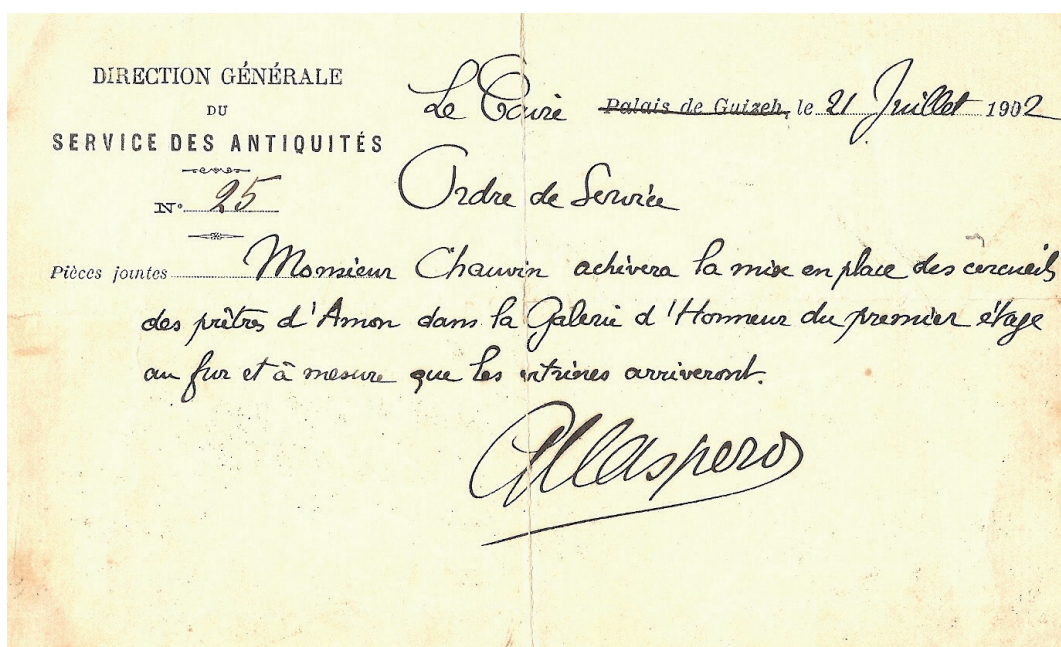 DIRECTION GÉNÉRALE
DU
SERVICE DES ANTIQUITÉS
N° 25
Le Caire Palais de Guizeh, le 21 Juillet 1902
Ordre de Service
Pièces jointes
Monsieur Chauvin achèvera la mise en place des cercueils
des prêtres d'Amon dans la Galerie d'Honneur du premier étage
au fur et à mesure que les vitrines arriveront.
GMaspero